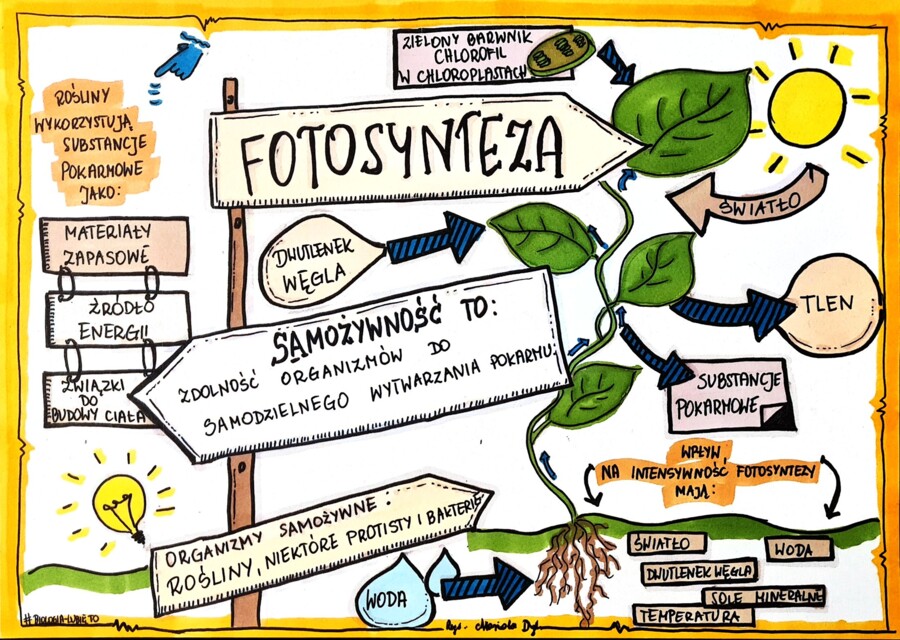 ZIELONY BARWNIK
CHLOROFIL
W CHLOROPLASTACH
ROŚLINY
WYKORZYSTUJĄ
SUBSTANCJE
POKARMOWE
JAKO:
FOTOSYNTEZA
ŚWIATŁO
MATERIAŁY
ZAPASOWE
ŹRÓDŁO
ENERGII
ZWIĄZKI
DO
BUDOWY CIAŁA
DWUTLENEK
WĘGLA
TLEN
SAMOŻYWNOŚĆ TO:
ZDOLNOŚĆ ORGANIZMÓW DO
SAMODZIELNEGO WYTWARZANIA POKARMU.
SUBSTANCJE
POKARMOWE
WPŁYW
NA INTENSYWNOŚĆ FOTOSYNTEZY
MAJĄ:
ORGANIZMY SAMOŻYWNE:
ROŚLINY, NIEKTÓRE PROTISTY I BAKTERIE
WODA
ŚWIATŁO
WODA
DWUTLENEK WĘGLA
SOLE MINERALNE
TEMPERATURA
#BIOLOGIA-LUBIĘ TO
Rys.